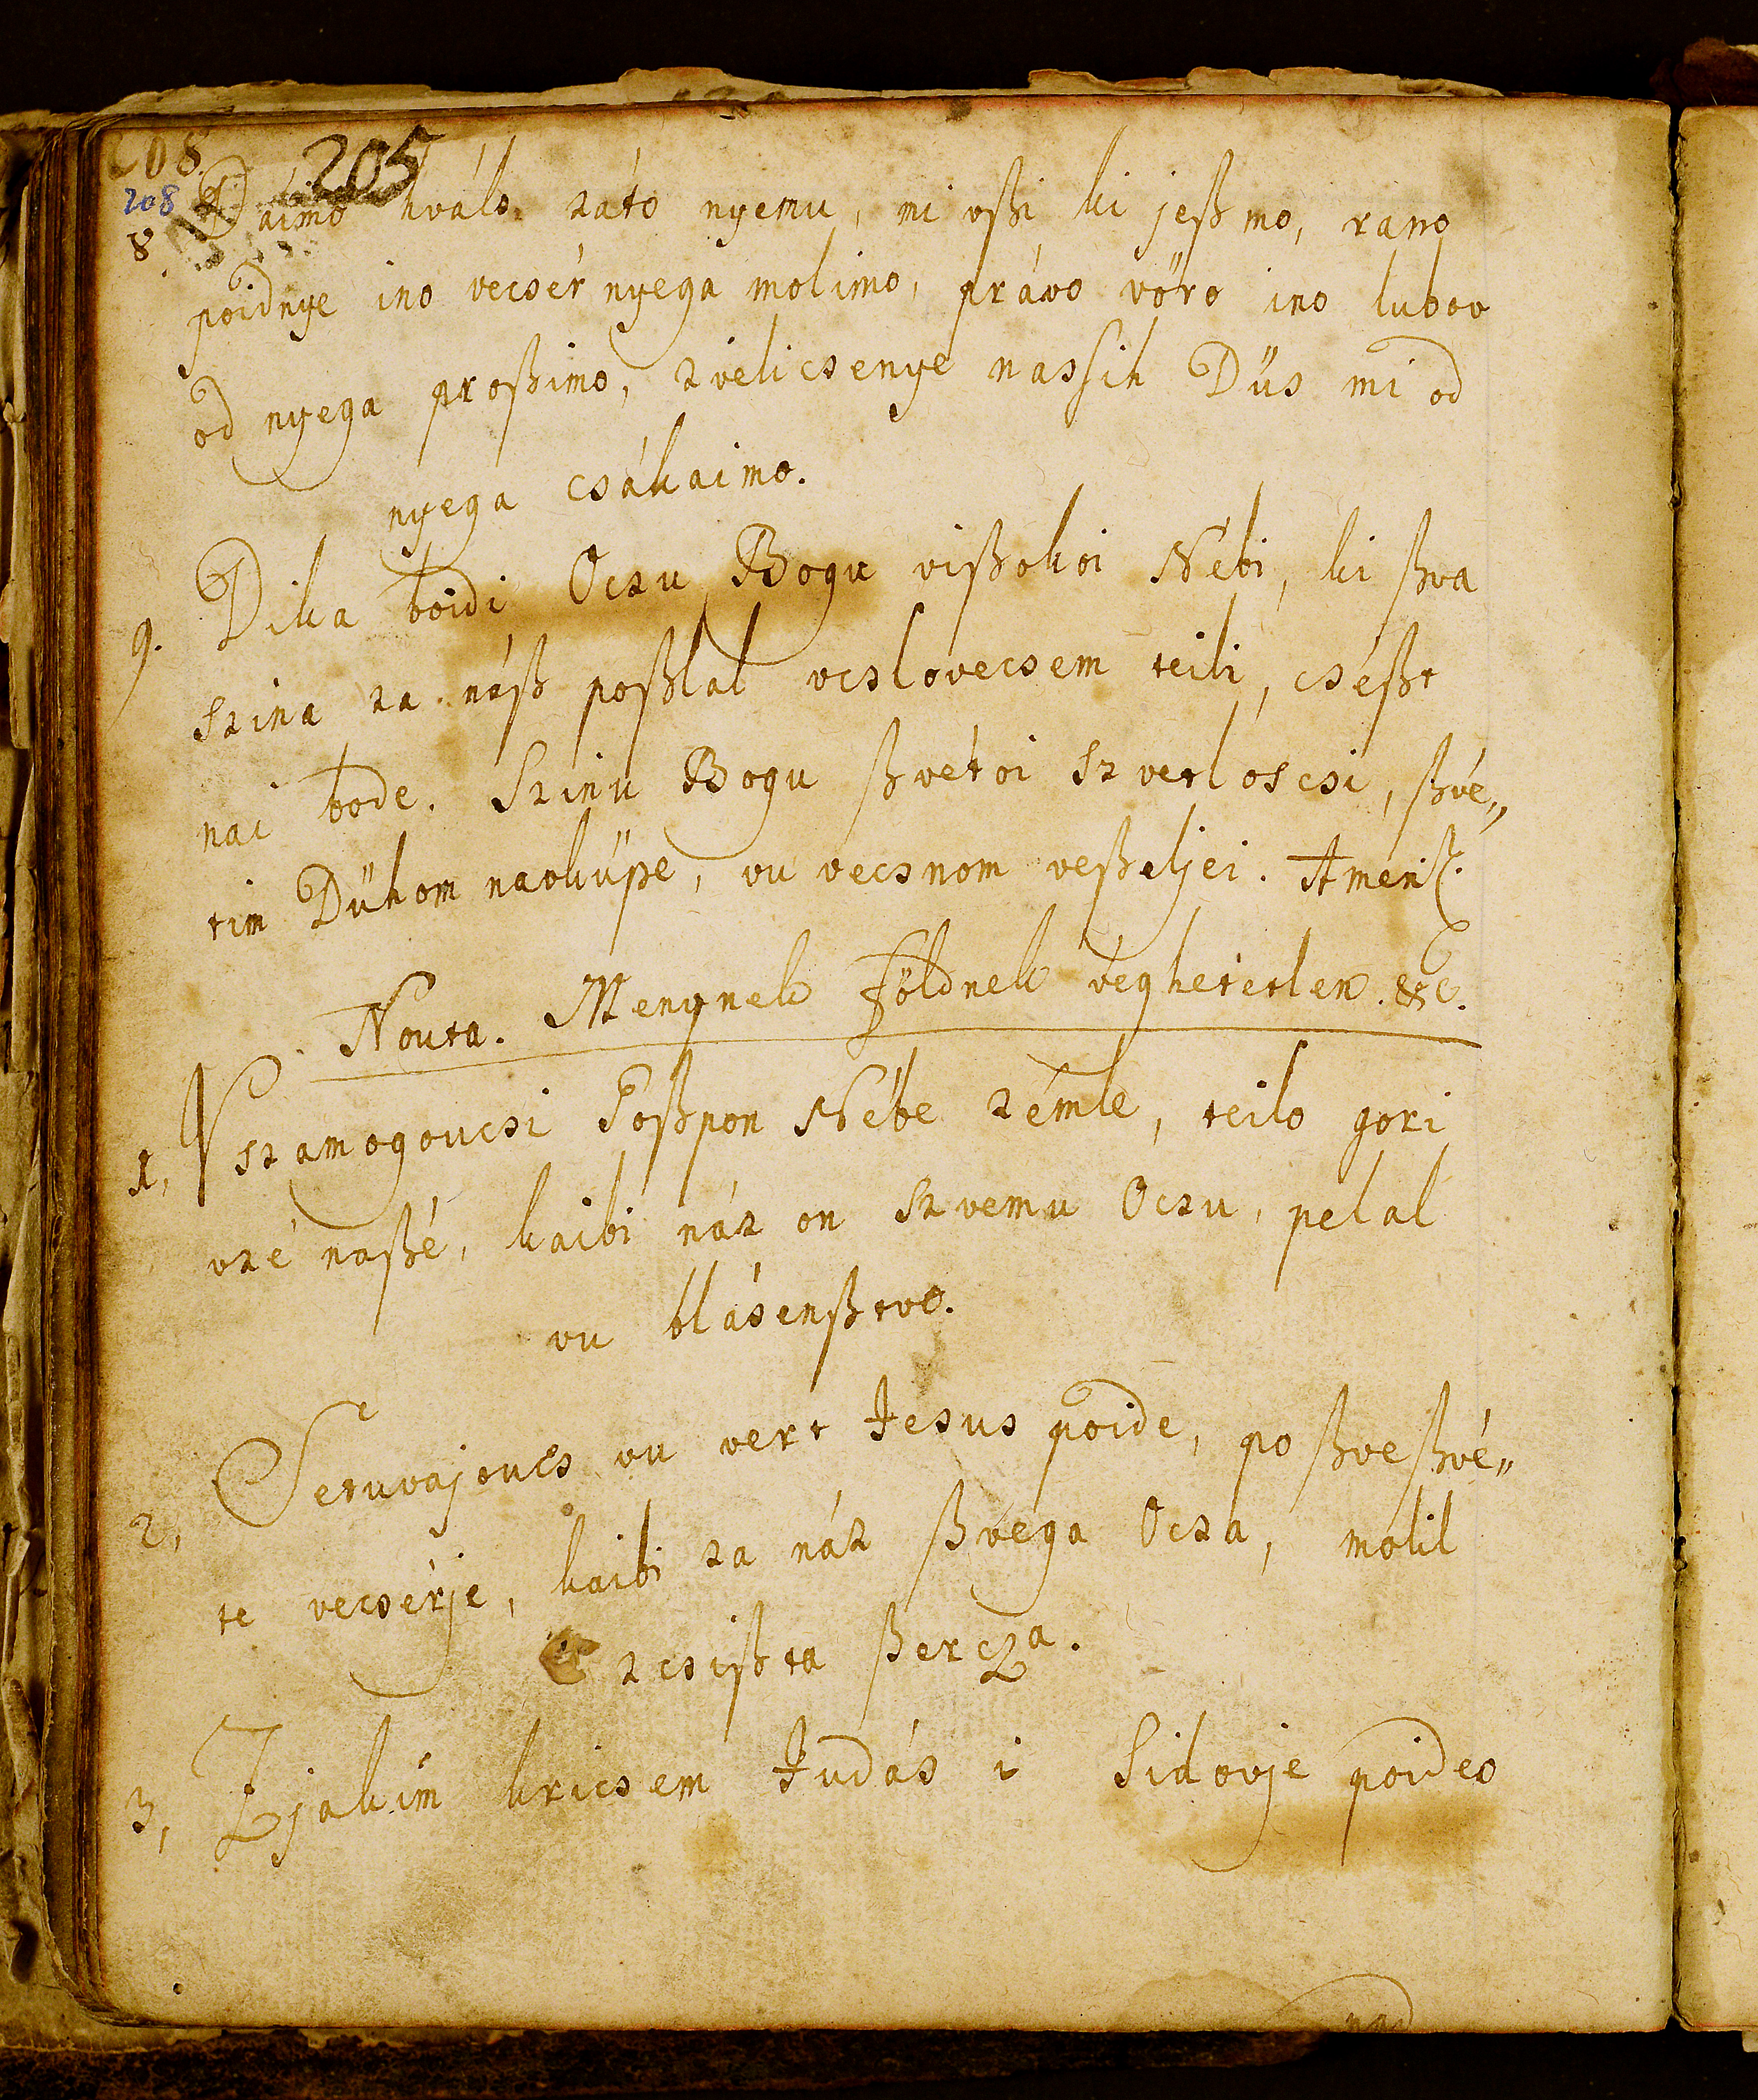 208. 205
208
8. Dáimo hválo záto nyemu, mi vßi ki jeßmo, rano
poidnye ino vecsér nyega molimo, právo vöro ino lubov
od nyega proßimo, zvélicsenye nassih Düs mi od
nyega csákaimo.
9. Dika boidi Oczu Bogu vißokoi Nébi, ki ßva
Szina za náß poßlal vcslovecsem teili, cséßt
nai bode. Szinu Bogu ßvétoi Szvetloscsi, ßvé„
tim Dühom navküpe, vu vecsnom veßeljei. Amen
Nouta. Menynek Földnek véghetetlen. &c.
1, Vszamogoucsi Goßpon Nébe zémle, teilo gori
vzé naßé, kaibi náz on Szvemu Oczu, pelal
vu blásenßtvo.
2, Setuvajoucs vu vert Jesus poide, po ßveßvé„
te vecsérje, kaibi za náz ßvega Ocza, molil
z csißta ßercza.
3, Zjakim kricsem Judás i Sidovje poideo